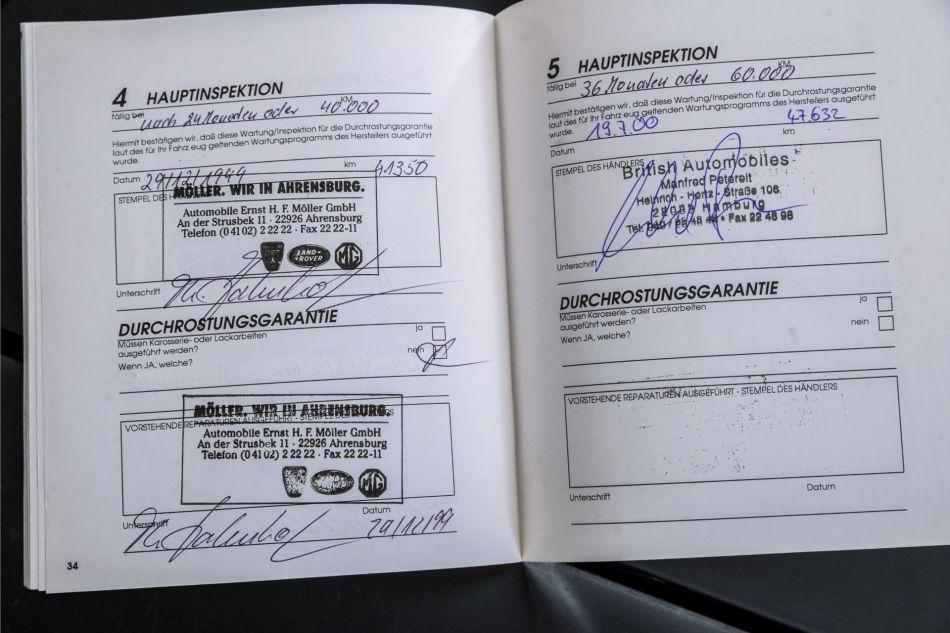 4 HAUPTINSPEKTION
fällig bei nach 24 Monaten oder 40.000 KM
Hiermit bestätigen wir, daß diese Wartung/Inspektion für die Durchrostungsgarantie
laut des für Ihr Fahr zeug geltenden Wartungsprogramms des Herstellers ausgeführt
wurde.
Datum 29/12/1999 km 41350
STEMPEL DES
MÖLLER. WIR IN AHRENSBURG.
Automobile Ernst H. F. Möller GmbH
An der Strusbek 11 · 22926 Ahrensburg
Telefon (0 41 02) 2 22 22 · Fax 22 22-11
LAND ROVER
MG
Unterschrift
DURCHROSTUNGSGARANTIE
Müssen Karosserie- oder Lackarbeiten ja
ausgeführt werden? nein
Wenn JA, welche?
MÖLLER. WIR IN AHRENSBURG.
VORSTEHENDE REPARATUREN AUSGEFÜHRT - STEMPEL DES HÄNDLERS
Automobile Ernst H. F. Möller GmbH
An der Strusbek 11 · 22926 Ahrensburg
Telefon (0 41 02) 2 22 22 · Fax 22 22-11
MG
Unterschrift Datum
29/12/99
34
5 HAUPTINSPEKTION
fällig bei 36 Monaten oder 60.000 KM
Hiermit bestätigen wir, daß diese Wartung/Inspektion für die Durchrostungsgarantie
laut des für Ihr Fahr zeug geltenden Wartungsprogramms des Herstellers ausgeführt
wurde. 19.7.00 47.632
Datum km
STEMPEL DES HÄNDLERS
British Automobiles
Manfred Petereit
Heinrich - Hertz - Straße 106
Hamburg
Fax 22 48 98
Unterschrift
DURCHROSTUNGSGARANTIE
Müssen Karosserie- oder Lackarbeiten ja
ausgeführt werden? nein
Wenn JA, welche?
VORSTEHENDE REPARATUREN AUSGEFÜHRT - STEMPEL DES HÄNDLERS
Unterschrift Datum